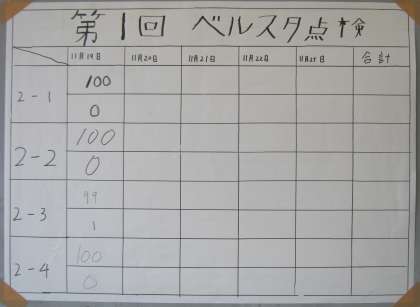 第1回 ベルスタ点検
11月19日 11月20日 11月21日 11月22日 11月25日 合計
2-1 100
0
2-2 100
0
2-3 99
1
2-4 100
0